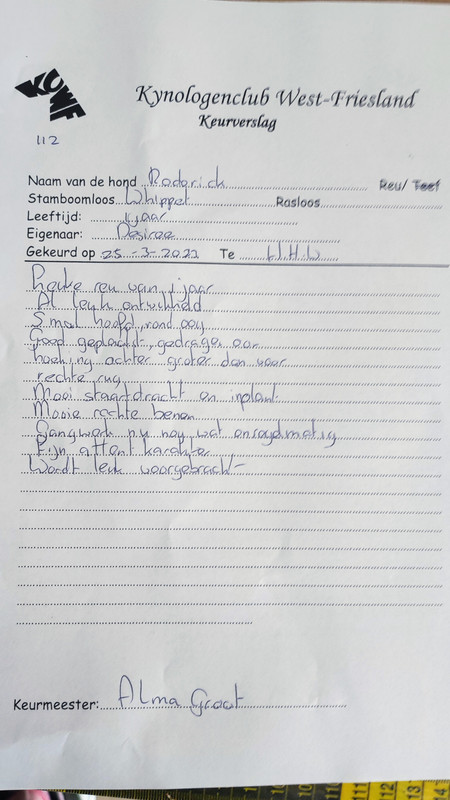 KCWF
Kynologenclub West-Friesland
Keurverslag
112
Naam van de hond Roderick Reu/ Teef
Stamboomloos Whippet Rasloos
Leeftijd: 1 jaar
Eigenaar: Desiree
Gekeurd op 25-3-2022 Te H.H.W
Leuke reu van 1 jaar
Al leuk ontwikkeld
Smal hoofd, rond oog
Goed geplaatst, gedragen oor
hoeking achter groter dan voor
rechte rug
Mooi staartdracht en inplant
Mooie rechte benen
Gangwerk nu nog wat onregelmatig
Fijn attent karakter
Wordt leuk voorgebracht
Keurmeester: Alma Groot
10 11 12 13 14